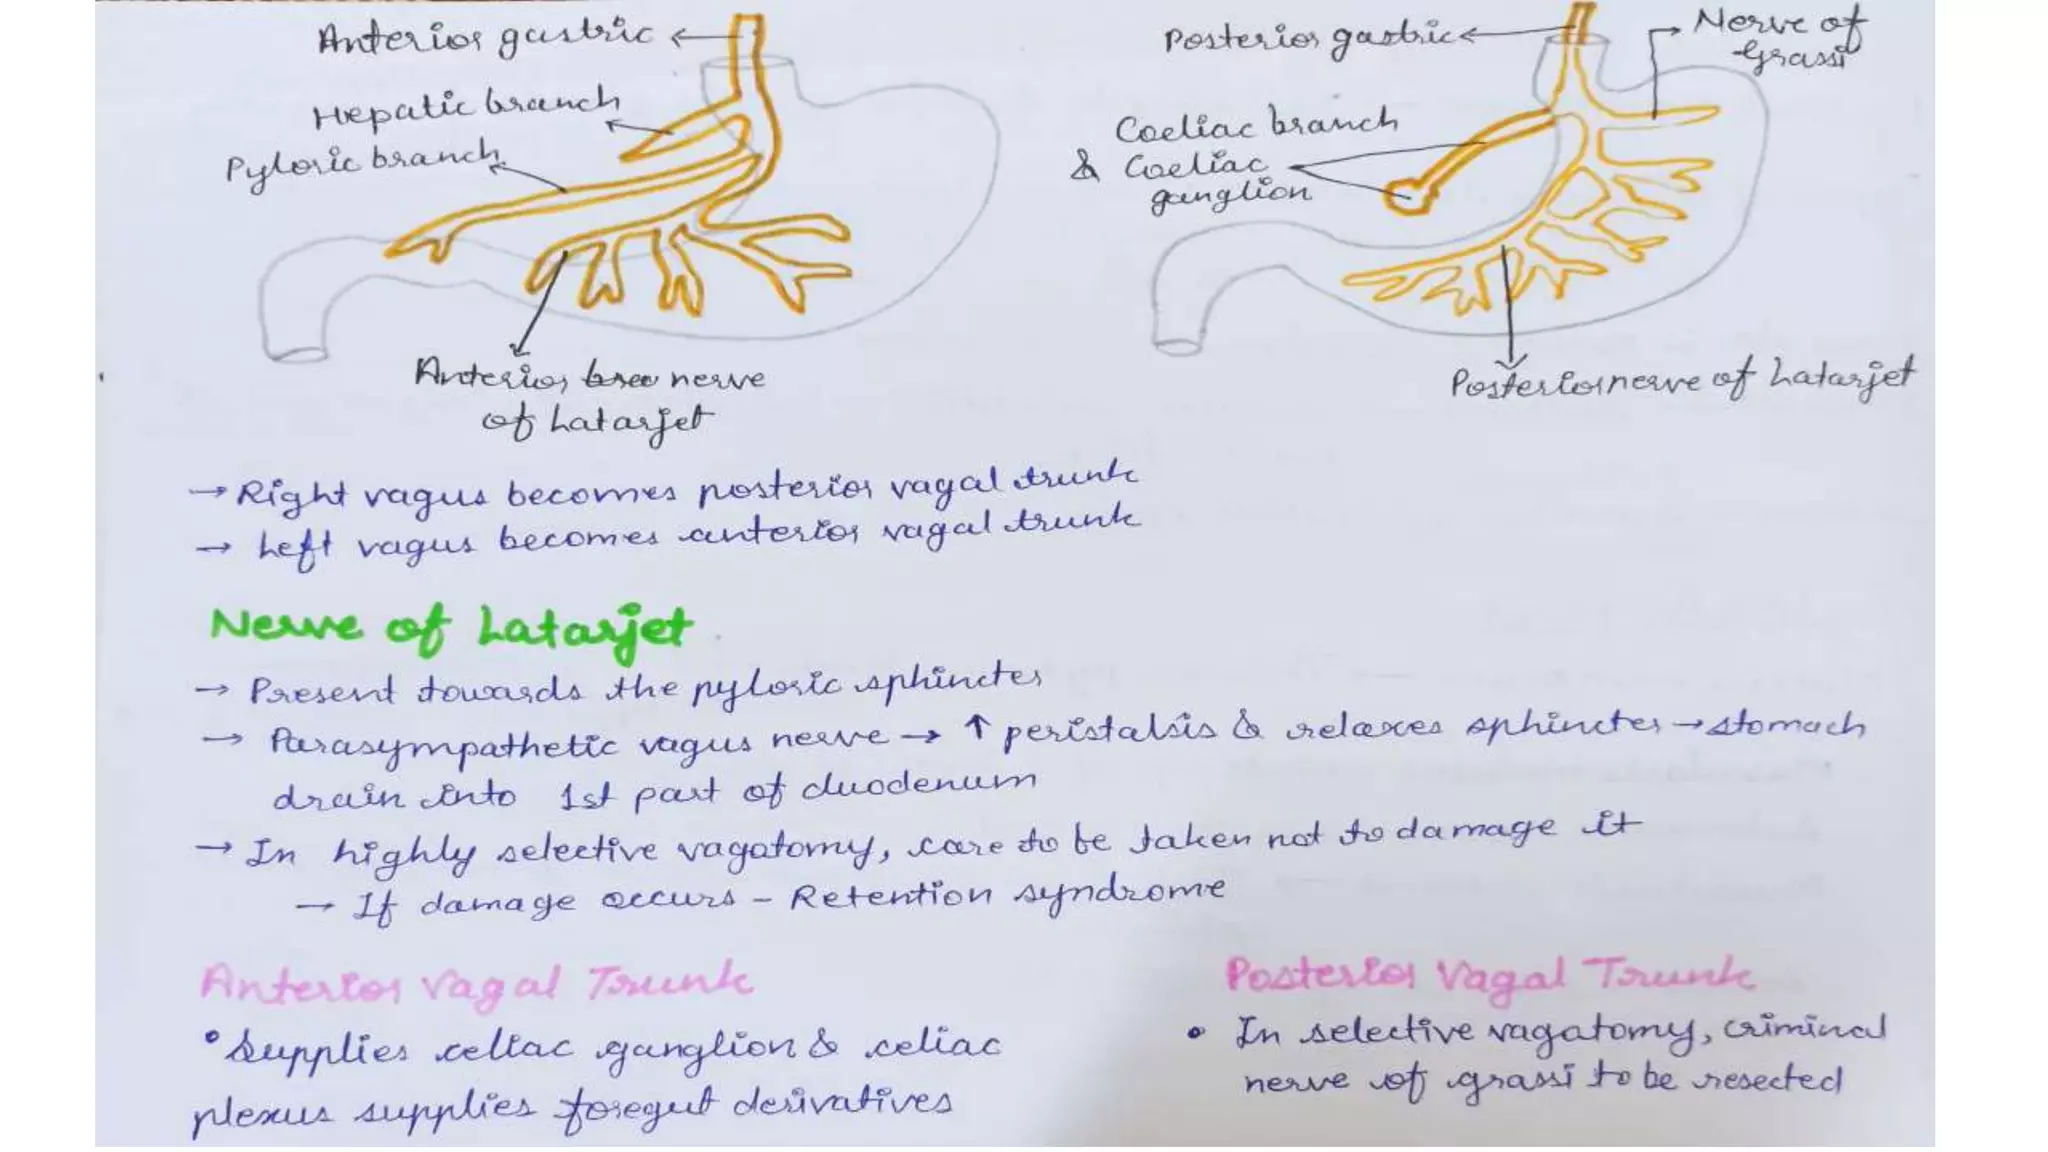 Anterior gastric
Hepatic branch
Pyloric branch
Anterior nerve
of Latarjet
Posterior gastric
Nerve of
Grassi
Coeliac branch
& Coeliac
ganglion
Posterior nerve of Latarjet
→ Right vagus becomes posterior vagal trunk
→ Left vagus becomes anterior vagal trunk
Nerve of Latarjet
→ Present towards the pyloric sphincter
→ Parasympathetic vagus nerve → ↑ peristalsis & relaxes sphincter → stomach
drain into 1st part of duodenum
→ In highly selective vagatomy, care to be taken not to damage it
→ If damage occurs - Retention syndrome
Anterior Vagal Trunk
• Supplies celiac ganglion & celiac
plexus supplies foregut derivatives
Posterior Vagal Trunk
• In selective vagatomy, criminal
nerve of grassi to be resected